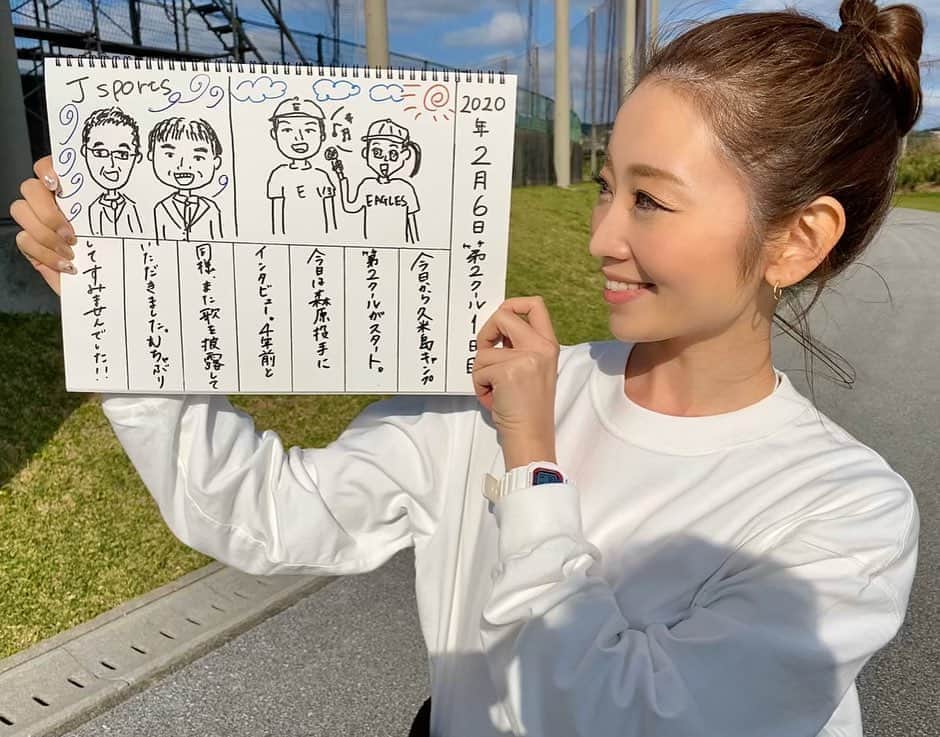 2020年2月6日 第2クール1日目
J sports
E
E
EAGLES
今日から久米島キャンプ
第2クールがスタート。
今日は森原投手に
インタビュー。4年前と
同様、また歌を披露して
いただきました。むちゃぶり
してすみませんでした!!